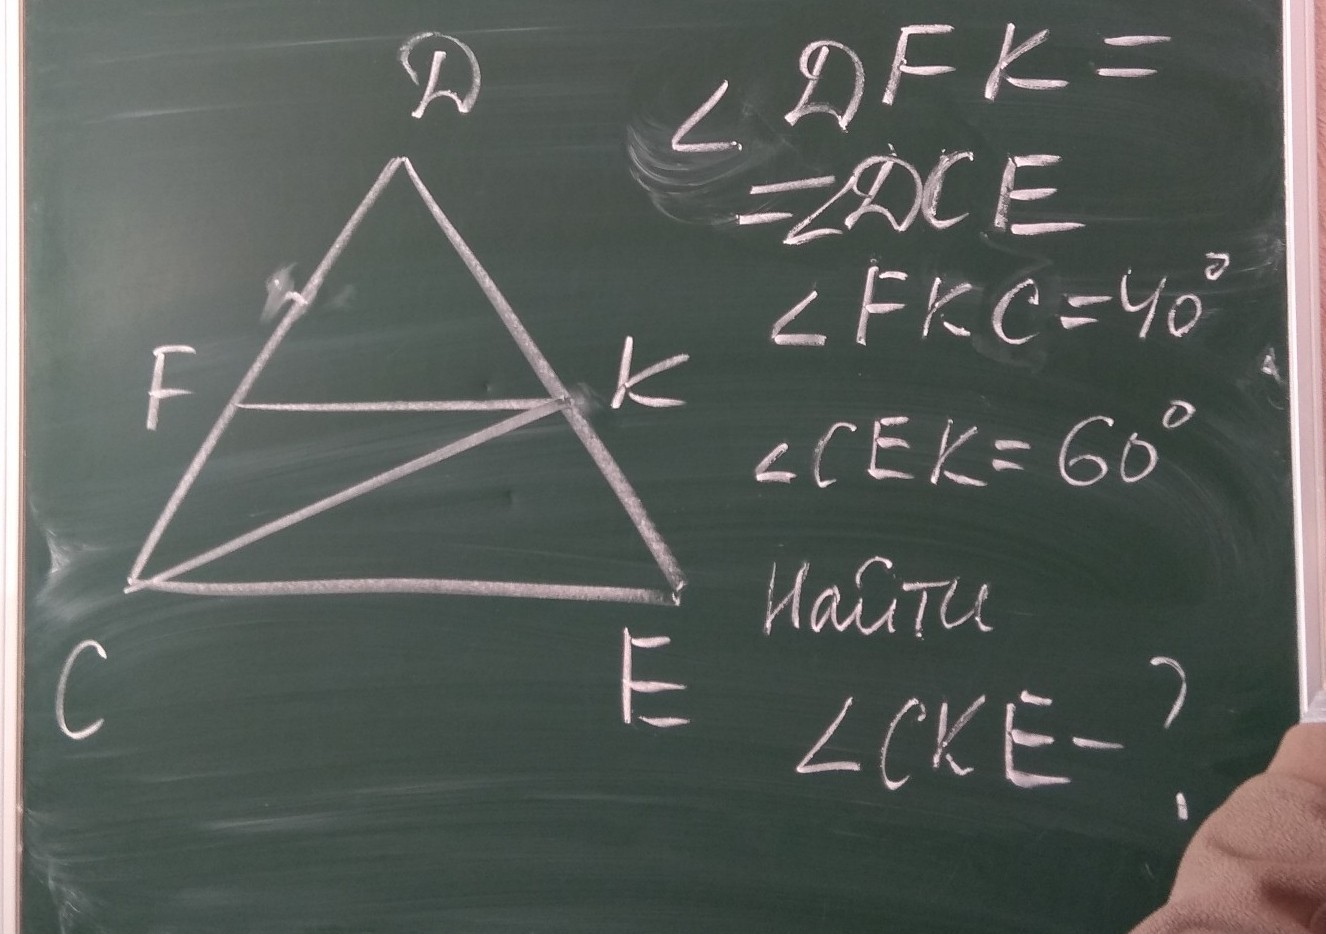 D
F
K
C
E
∠DFK=
=∠DCE
∠FKC=40°
∠CEK=60°
Найти
∠CKE-?